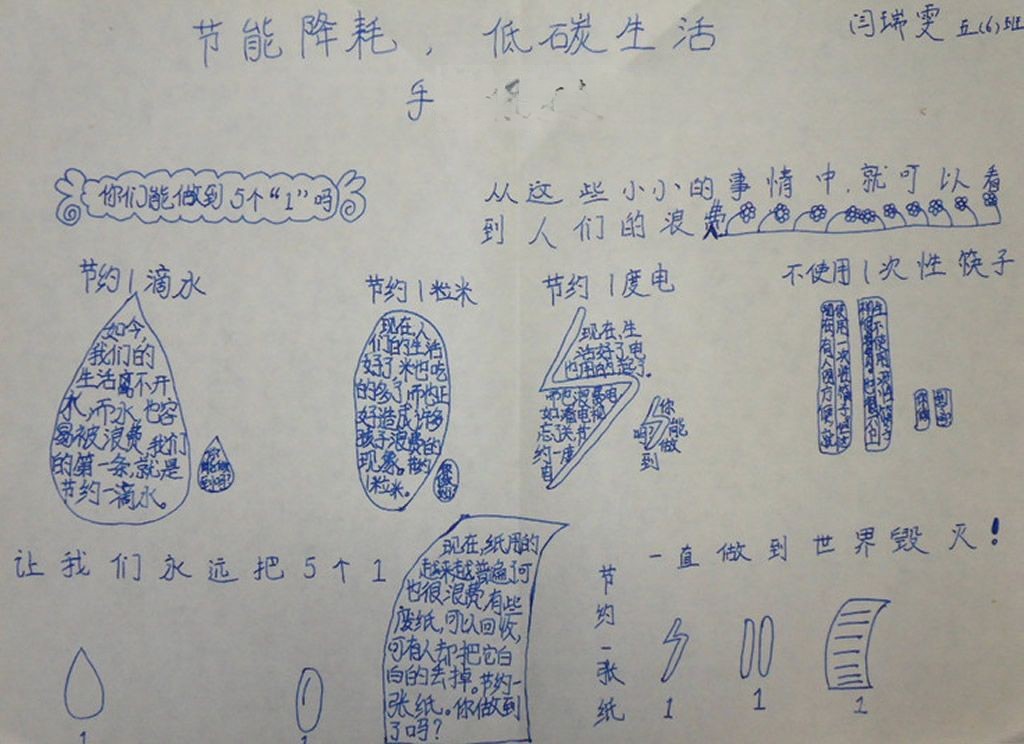 节能降耗，低碳生活
闫瑞雯 五(6)班
手
你们能做到5个“1”吗
从这些小小的事情中，就可以看
到人们的浪费
节约1滴水
如今，
我们的
生活离不开
水，而水也容
易被浪费，我们
的第一条就是
节约一滴水。
你
能做
到吗？
节约1粒米
现在人
们的生活
好了米也吃
的多了，而
好造成许多
孩子浪费的
现象。节约
粒米。
节约1度电
现在，生
活好了，电
也用的
约一度
电
你
能
做
到
吗
不使用1次性筷子
让我们永远把5个1
一直做到世界毁灭！
现在，纸用的
越来越普遍，可
也很浪费，有些
废纸，可以回收，
可有人却把它白
白的丢掉。节约一
张纸。你做到
了吗？
节约一张纸
1
1
1
1
1